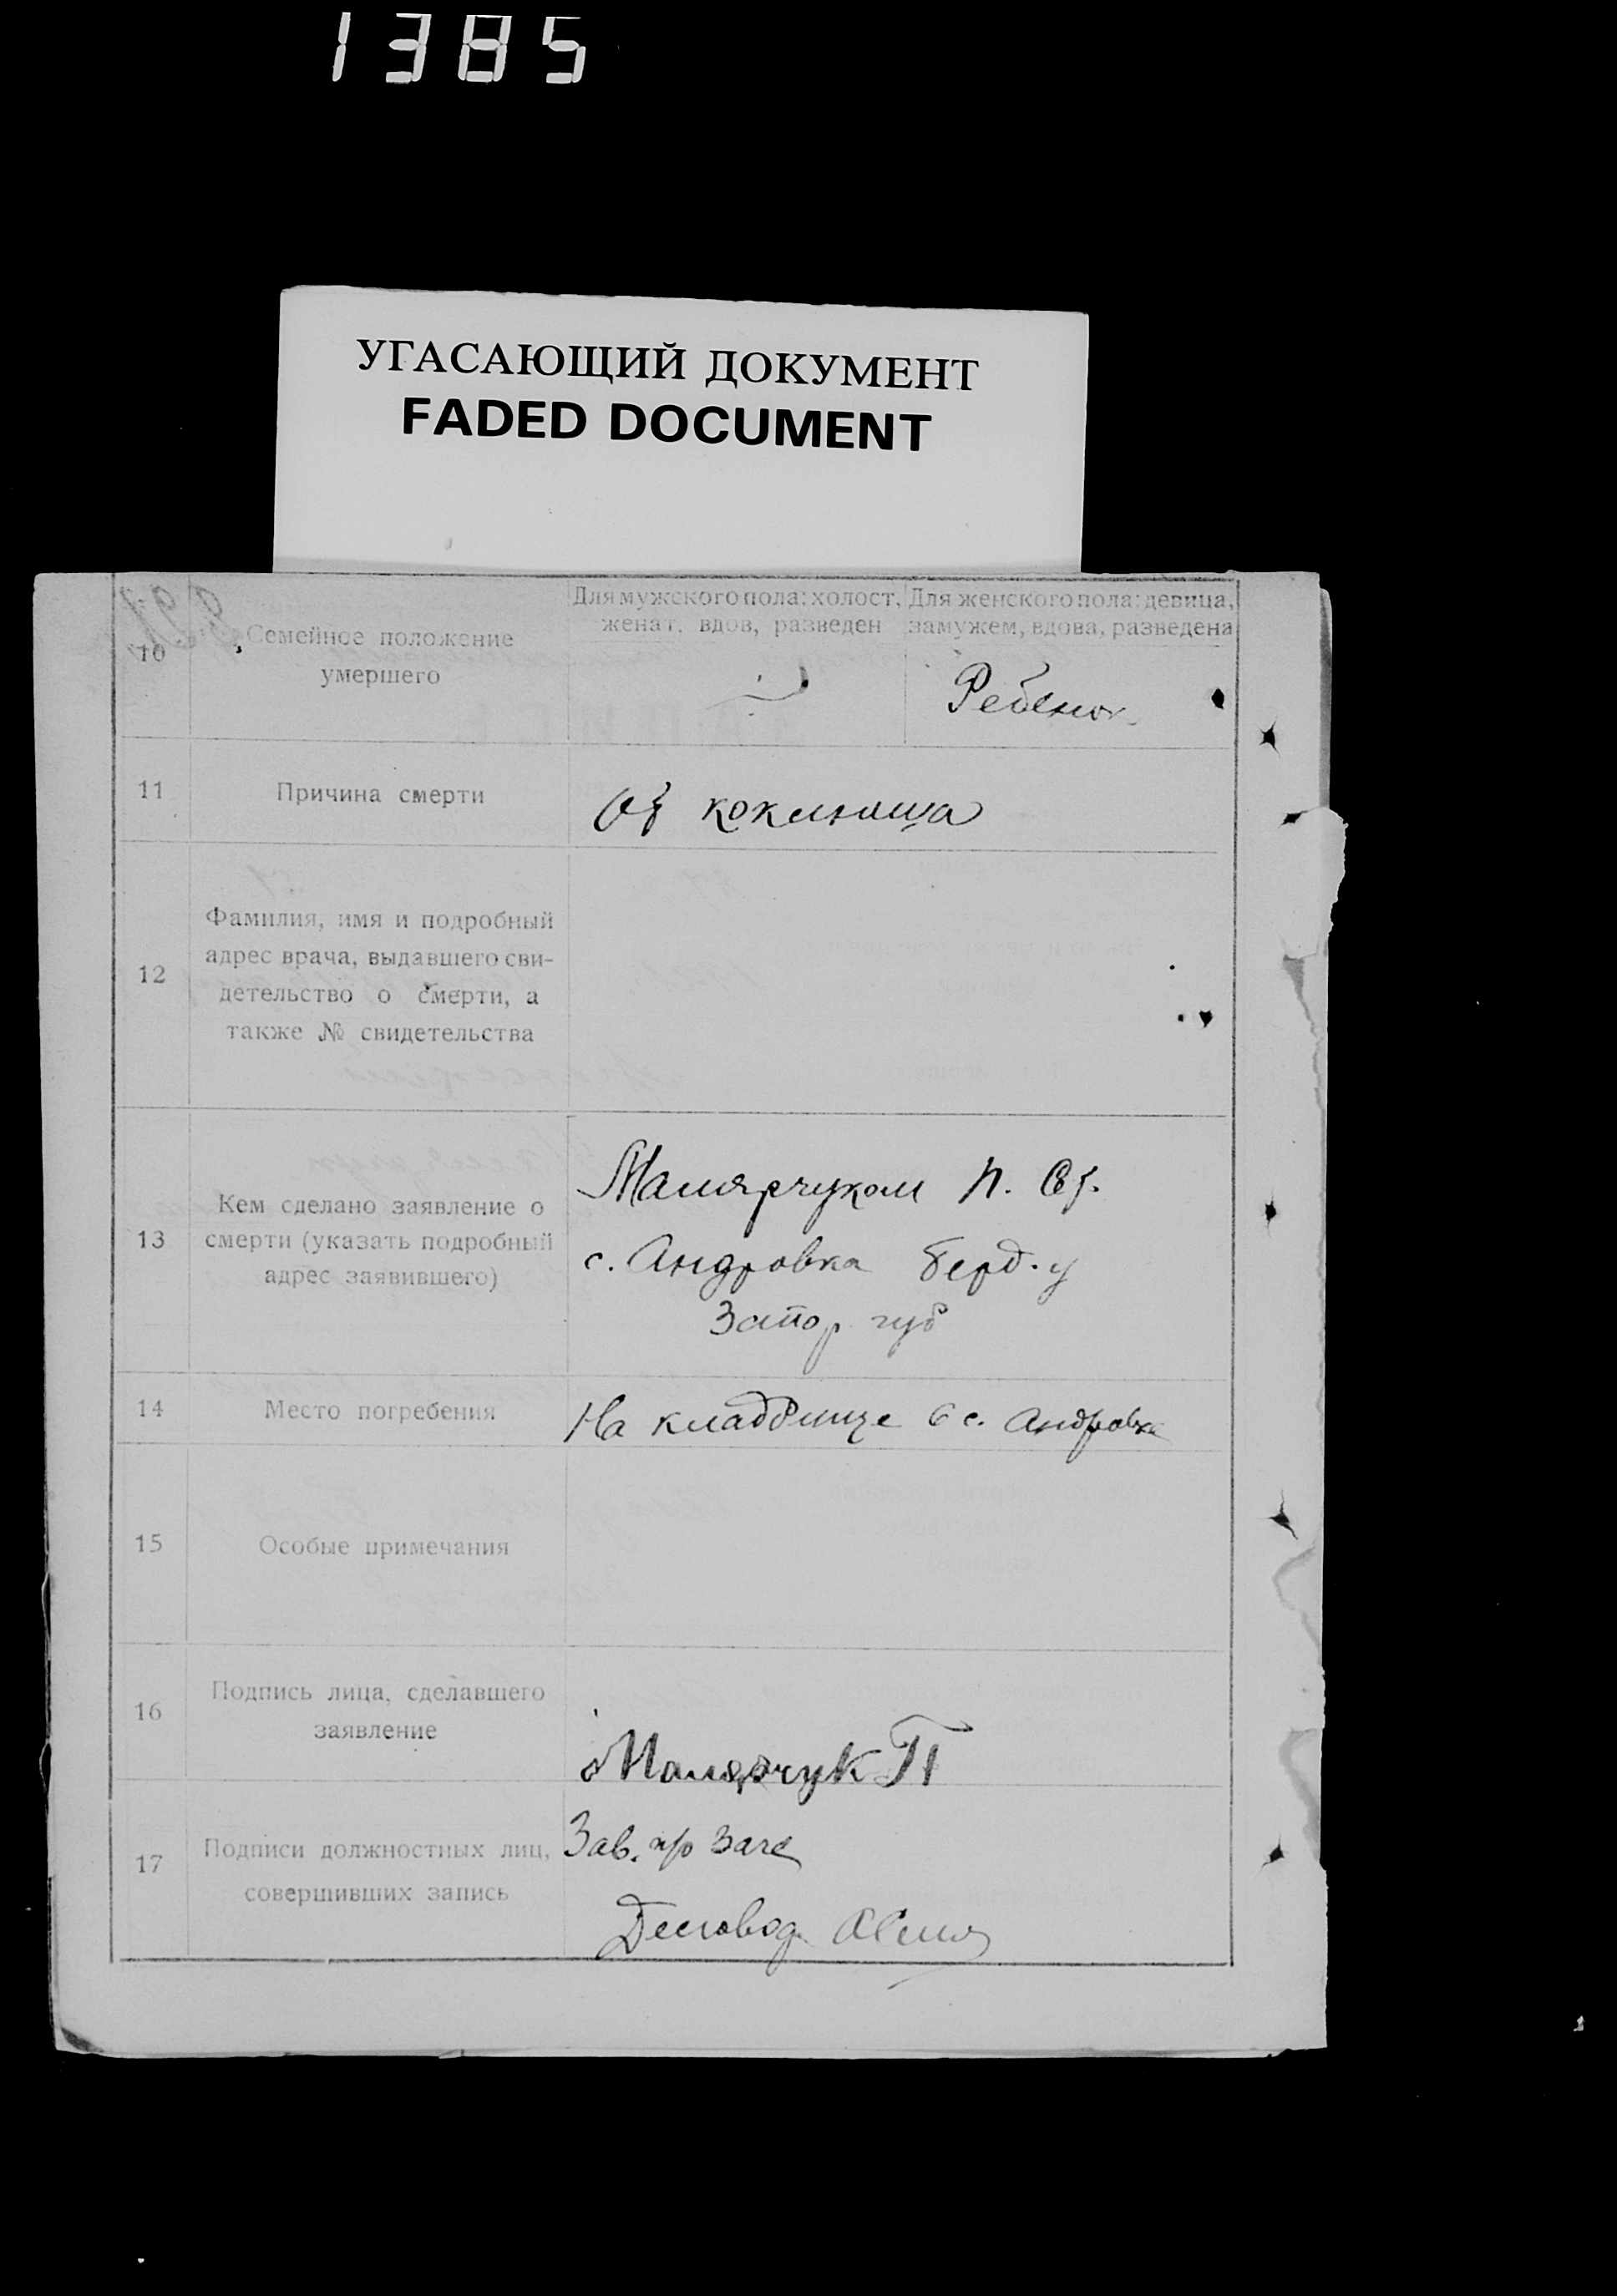 1385
УГАСАЮЩИЙ ДОКУМЕНТ
FADED DOCUMENT
10
Семейное положение
умершего
Для мужского пола: холост,
женат, вдов, разведен
Для женского пола: девица,
замужем, вдова, разведена
Ребенок
11
Причина смерти
От коклюша
12
Фамилия, имя и подробный
адрес врача, выдавшего сви-
детельство о смерти, а
также № свидетельства
13
Кем сделано заявление о
смерти (указать подробный
адрес заявившего)
Малярчуком П.
с. Андровка Берд. у
Запор губ
14
Место погребения
На кладбище в с. Андровка
15
Особые примечания
16
Подпись лица, сделавшего
заявление
Малярчук П
17
Подписи должностных лиц,
совершивших запись
Зав. п/о
Деловод.